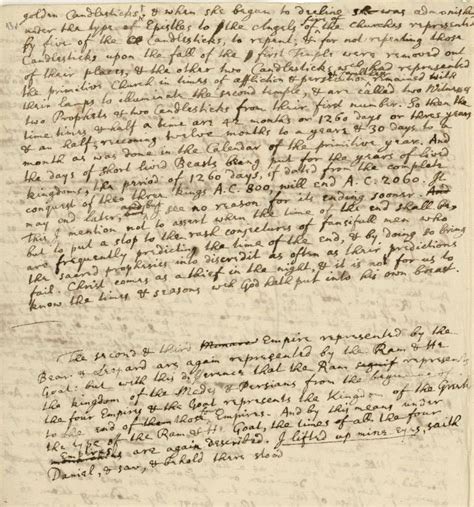 golden Candlesticks, & when she began to decline she was admonished
under the type of Epistles to the Angels of the Churches represented
by five of the Candlesticks, to repent, & for not repenting those
Candlesticks upon the fall of the first Temple were removed out
of their places, & the other two Candlesticks wch had represented
the primitive Church in times of affliction & persecution remained with
their lamps to illuminate the second temple, & are called two Witnesses
two Prophets & two Candlesticks from their first number. So then the
time times & half a time are 42 months or 1260 days or three years
& an half, recconing twelve months to a yeare & 30 days to a
month as was done in the Calendar of the primitive year. And
the days of short lived Beasts being put for the years of lived
kingdoms, the period of 1260 days, if dated from the complete
conquest of the three kings A.C. 800, will end A.C. 2060. It
may end later, but I see no reason for its ending sooner.
This I mention not to assert when the time of the end shall be,
but to put a stop to the rash conjectures of fancifull men who
are frequently predicting the time of the end, & by doing so bring
the sacred prophesies into discredit as often as their predictions
fail. Christ comes as a thief in the night, & it is not for us to
know the times & seasons wch God hath put into his own breast.
The second & third Empire represented by the
Bear & Leopard are again represented by the Ram & He
Goat: but with this difference that the Ram represents
the kingdom of the Medes & Persians from the
the four Empires & the Goat represents the kingdom of the Greeks
to the end of those Empires. And by this means under
the type of the Ram & He Goat, the times of all the four
Empires are again described. I lifted up mine eyes, saith
Daniel, & saw, & behold there stood